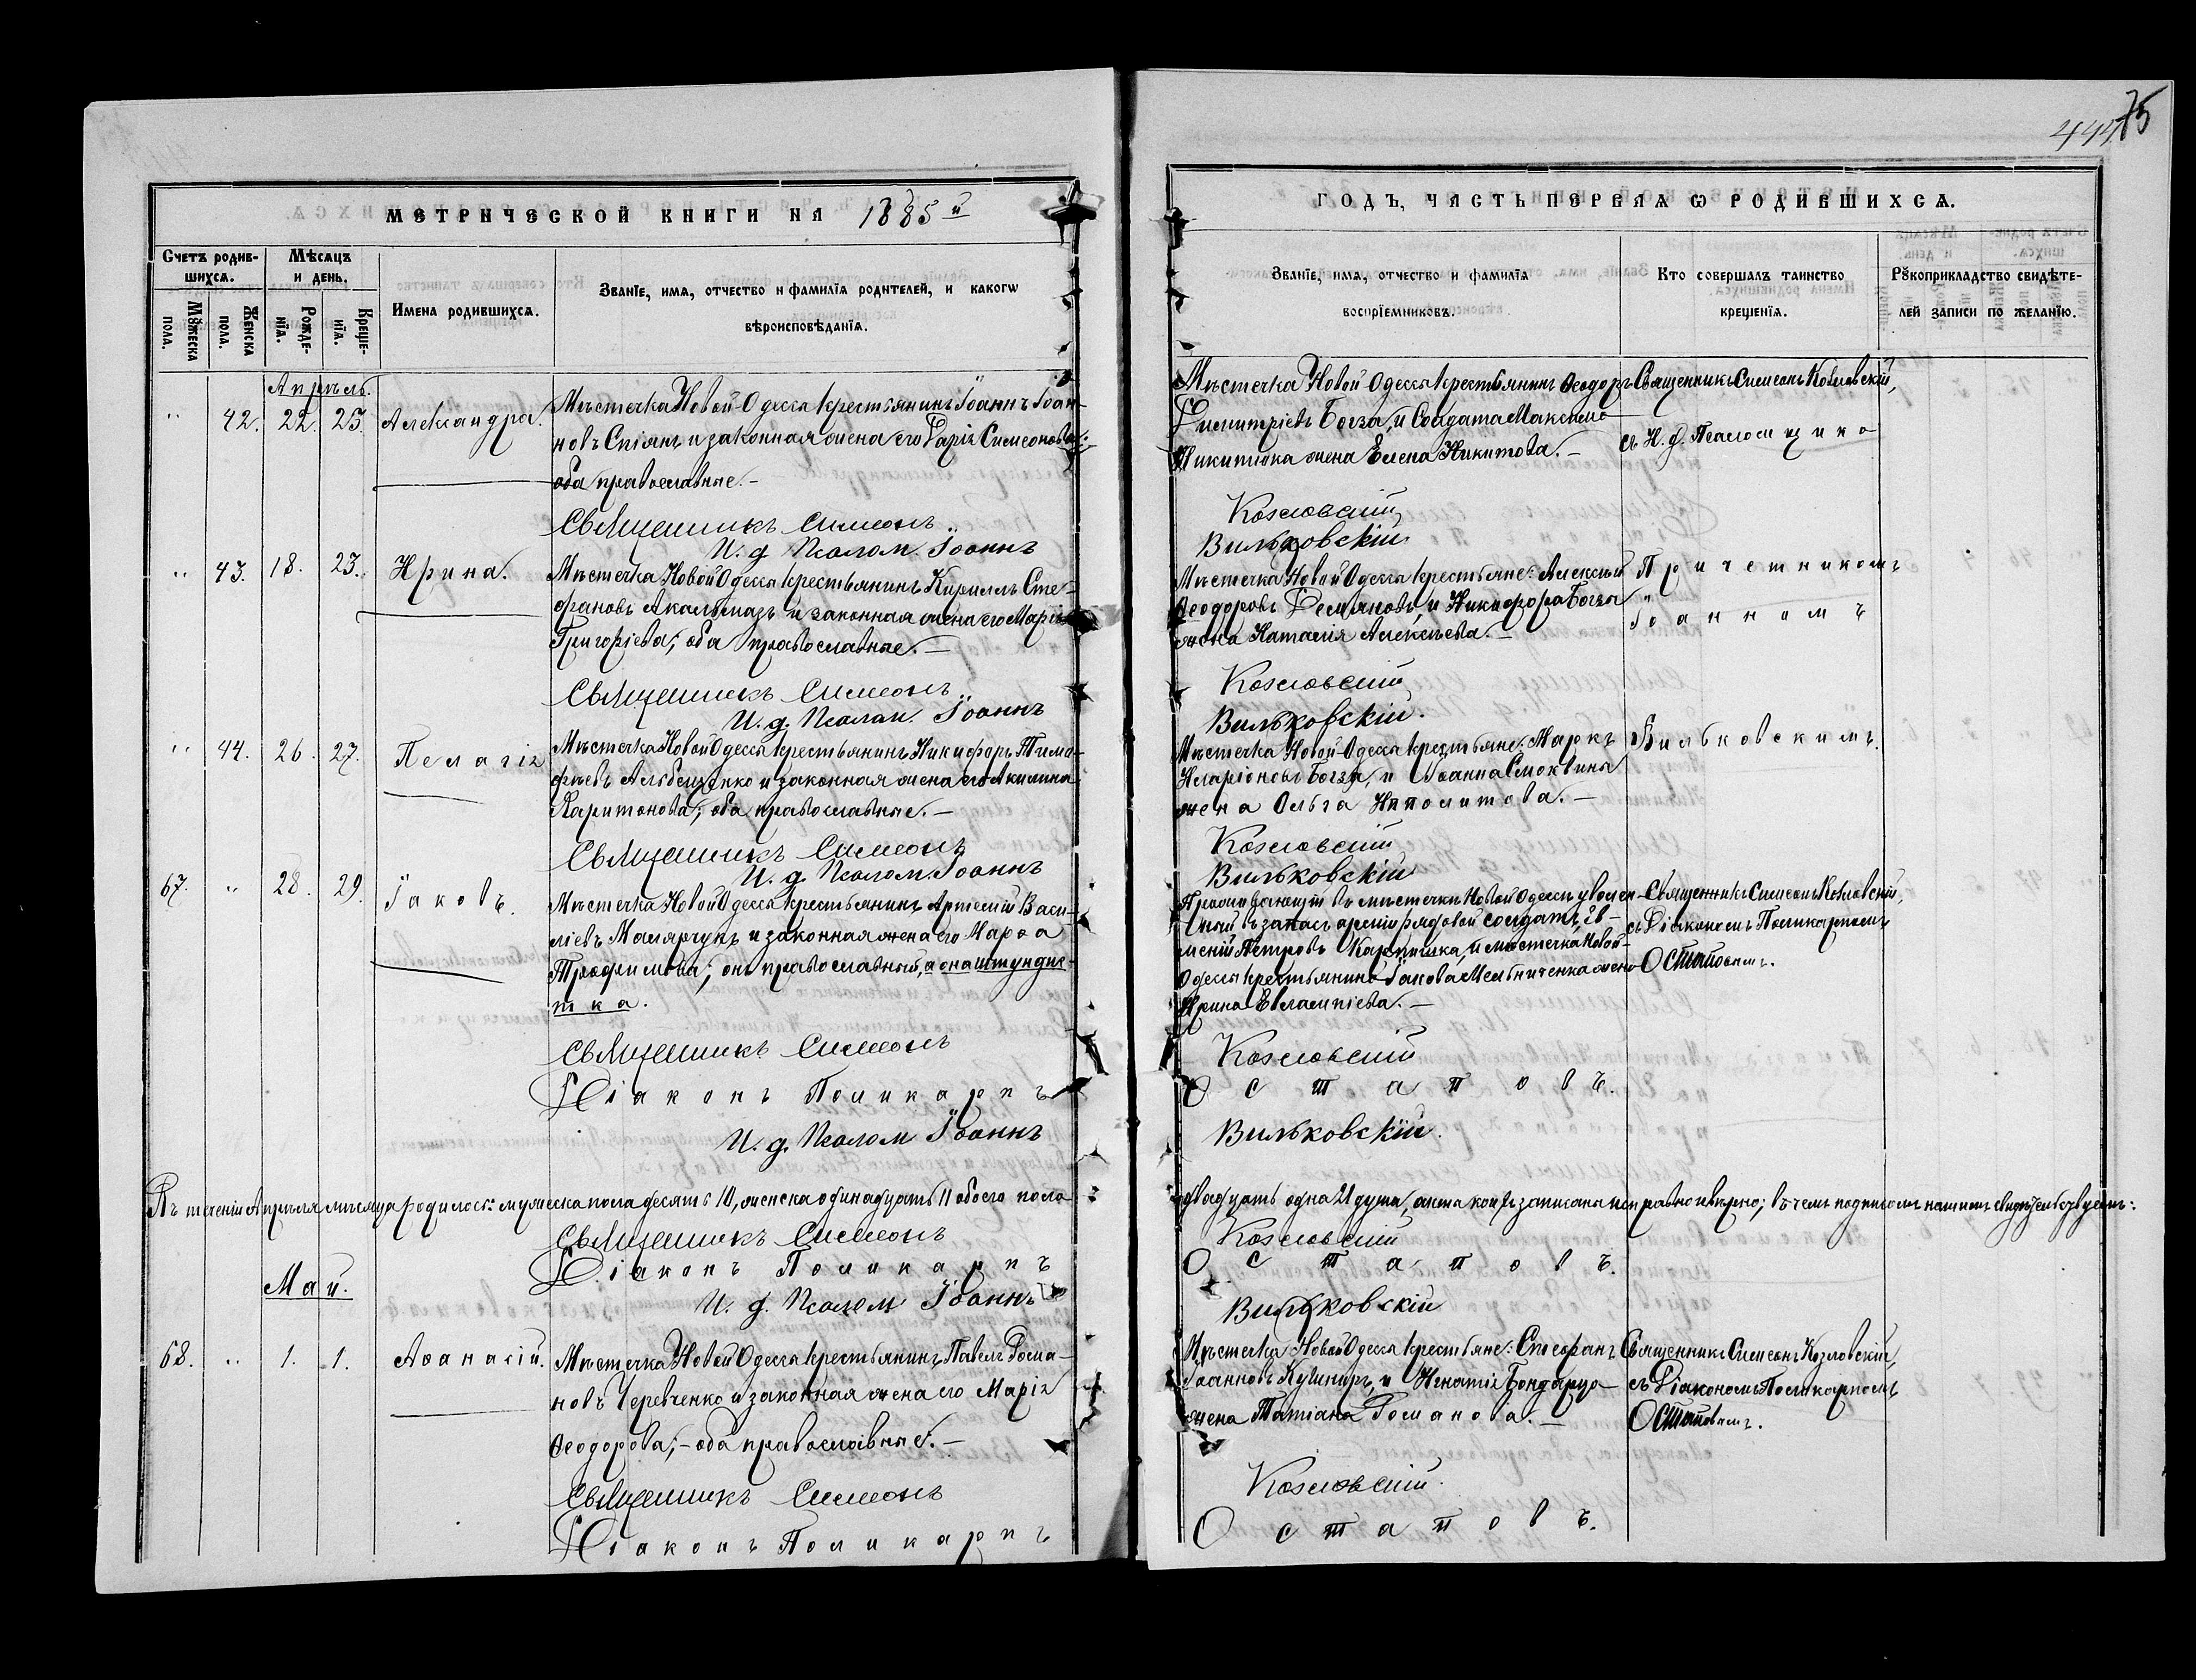 444
75
МЕТРИЧЕСКОЙ КНИГИ НА 1885 й
Счетъ родившихсѧ.
Мѣсѧцъ и день.
Мꙋжеска пола.
Женска пола.
Рожденїѧ.
Крещенїѧ.
Имена родившихсѧ.
Званїе, имѧ, отчество и фамилїѧ родителей, и какогѡ
вѣроисповѣданїѧ.
Апрѣль.
" 42. 22. 23. Александра.
Мѣстечка Новой-Одессы крестьянинъ Іоаннъ Іоан-
новъ Спіянъ и законная жена его Дарія Симеонова;
оба православные.-
Священникъ Симеонъ
И. д. Псалом. Іоаннъ
" 43. 18. 23. Ирина.
Мѣстечка Новой Одессы крестьянинъ Кириллъ Сте-
фановъ Акалмазъ и законная жена его Марія
Григоріева; оба православные.-
Священникъ Симеонъ
И. д. Псалом. Іоаннъ
" 44. 26. 27. Пелагія
Мѣстечка Новой Одессы крестьянинъ Никифоръ Тимо-
фѣевъ Альбещенко и законная жена его Акилина
Харитонова; оба православные.-
Священникъ Симеонъ
И. д. Псалом. Іоаннъ
67. " 28. 29. Іаковъ.
Мѣстечка Новой Одессы крестьянинъ Артемій Васи-
ліевъ Малярчукъ и законная жена его Марѳа
Трофимова; онъ православный, а она штундис-
тка.
Священникъ Симеонъ
Діаконъ Поликарпъ
И. д. Псалом Іоаннъ
Въ теченіи Апрѣля мѣсяца родилось: мужеска пола десять 10, женска одинадцать 11 обоего пола
Священникъ Симеонъ
Діаконъ Поликарпъ
И. д. Псалом Іоаннъ
Май.
68. " 1. 1. Аѳанасій.
Мѣстечка Новой Одессы крестьянинъ Павелъ Рома-
новъ Черевченко и законная жена его Марія
Ѳеодорова;- оба православные.-
Священникъ Симеонъ
Діаконъ Поликарпъ
ГОДЪ, ЧАСТЬ ПЕРВАѦ Ѡ РОДИВШИХСѦ.
Званїе, имѧ, отчество и фамилїѧ
воспрїемниковъ.
Кто совершалъ таинство
крещенїѧ.
Рꙋкоприкладство свидѣте-
лей записи по желанїю.
Мѣстечка Новой Одессы крестьянинъ Ѳеодоръ
Димитріевъ Богза, и Солдата Максима
Никитюка жена Елена Никитова.-
Священникъ Симеонъ Козловскій,
съ И. д. Псаломщика
Козловскій
Вильковскій
Мѣстечка Новой Одессы крестьяне: Алексѣй
Ѳеодоровъ Демяновъ, и Никифора Богзы
жена Наталія Алексѣева.-
Причетникомъ
Іоанномъ
Козловскій
Вильковскій.
Мѣстечка Новой Одессы крестьяне: Маркъ
Иларіоновъ Богза, и Іоанна Смоквины
жена Ольга Ипполитова.-
Вильковскимъ.
Козловскій
Вильковскій
Проживающій въ мѣстечкѣ Новой Одессѣ уволен-
ный въ запасъ арміи рядовой солдатъ, Ев-
меній Петровъ и мѣстечка Новой-
Одессы крестьянина Іакова Мельниченка жена
Ирина Евлампіева.-
Священникъ Симеонъ Козловскій,
съ Діакономъ Поликарпомъ
Остаповымъ.
Козловскій
Остаповъ.
Вильковскій.
двадцать одна 21 душа, актъ коихъ записана исправно и вѣрно; въ чемъ подписомъ нашимъ свидѣтельствуемъ:
Козловскій
Остаповъ.
Вильковскій
Мѣстечка Новой Одессы крестьяне: Стефанъ
Іоанновъ Кушниръ, и Игнатія Бондарцо
жена Татіана Романова.-
Священникъ Симеонъ Козловскій,
съ Діакономъ Поликарпомъ
Остаповымъ.
Козловскій.
Остаповъ.